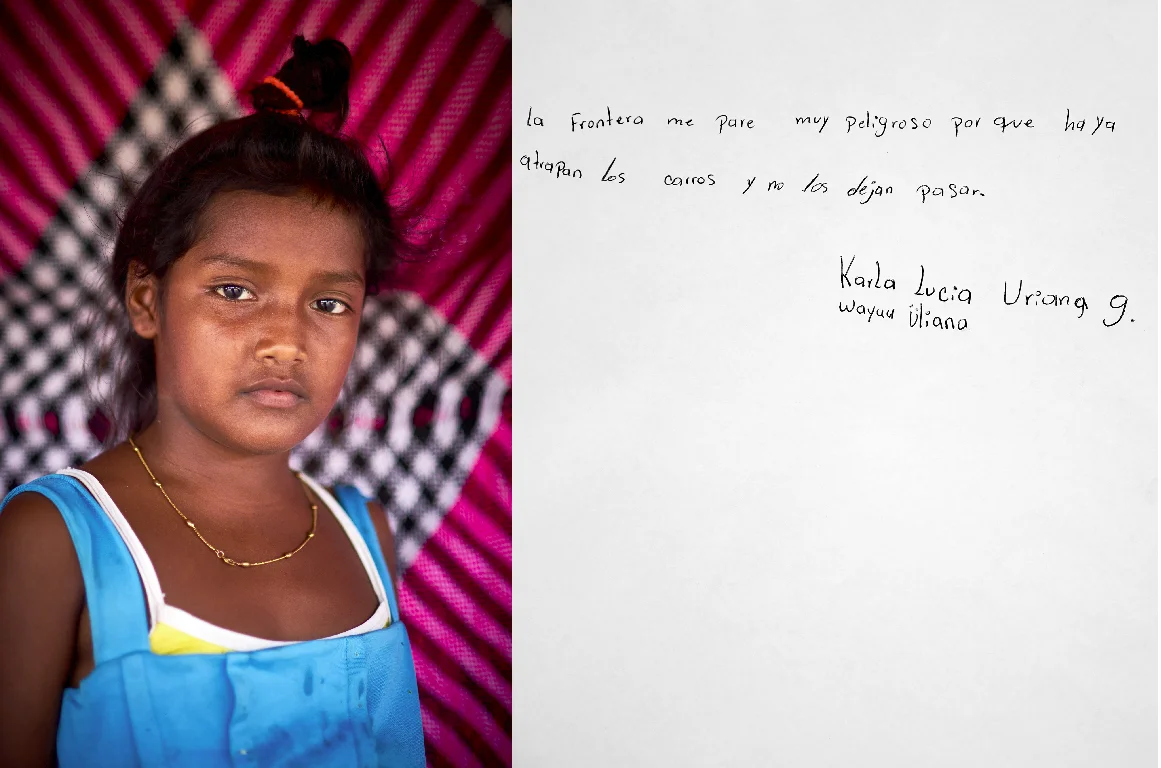 la Frontera me pare muy peligroso por que ha ya
atrapan los carros y no los dejan pasar.
Karla Lucia Uriana g.
wayuu Üliana